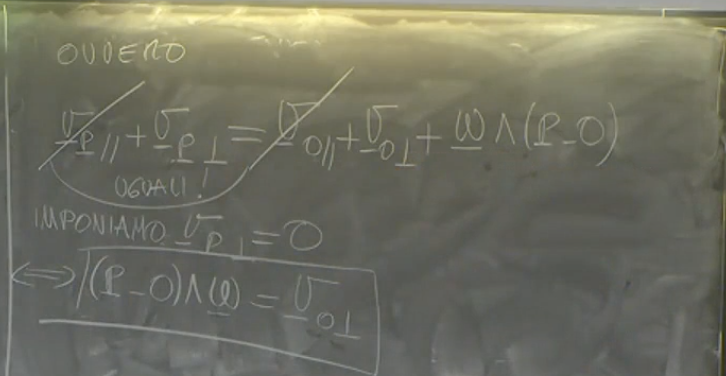 OVVERO
v_P∥ + v_P⊥ = v_O∥ + v_O⊥ + ω ∧ (P-O)
UGUALI!
IMPONIAMO v_P⊥ = 0
⟺ (P-O) ∧ ω = v_O⊥